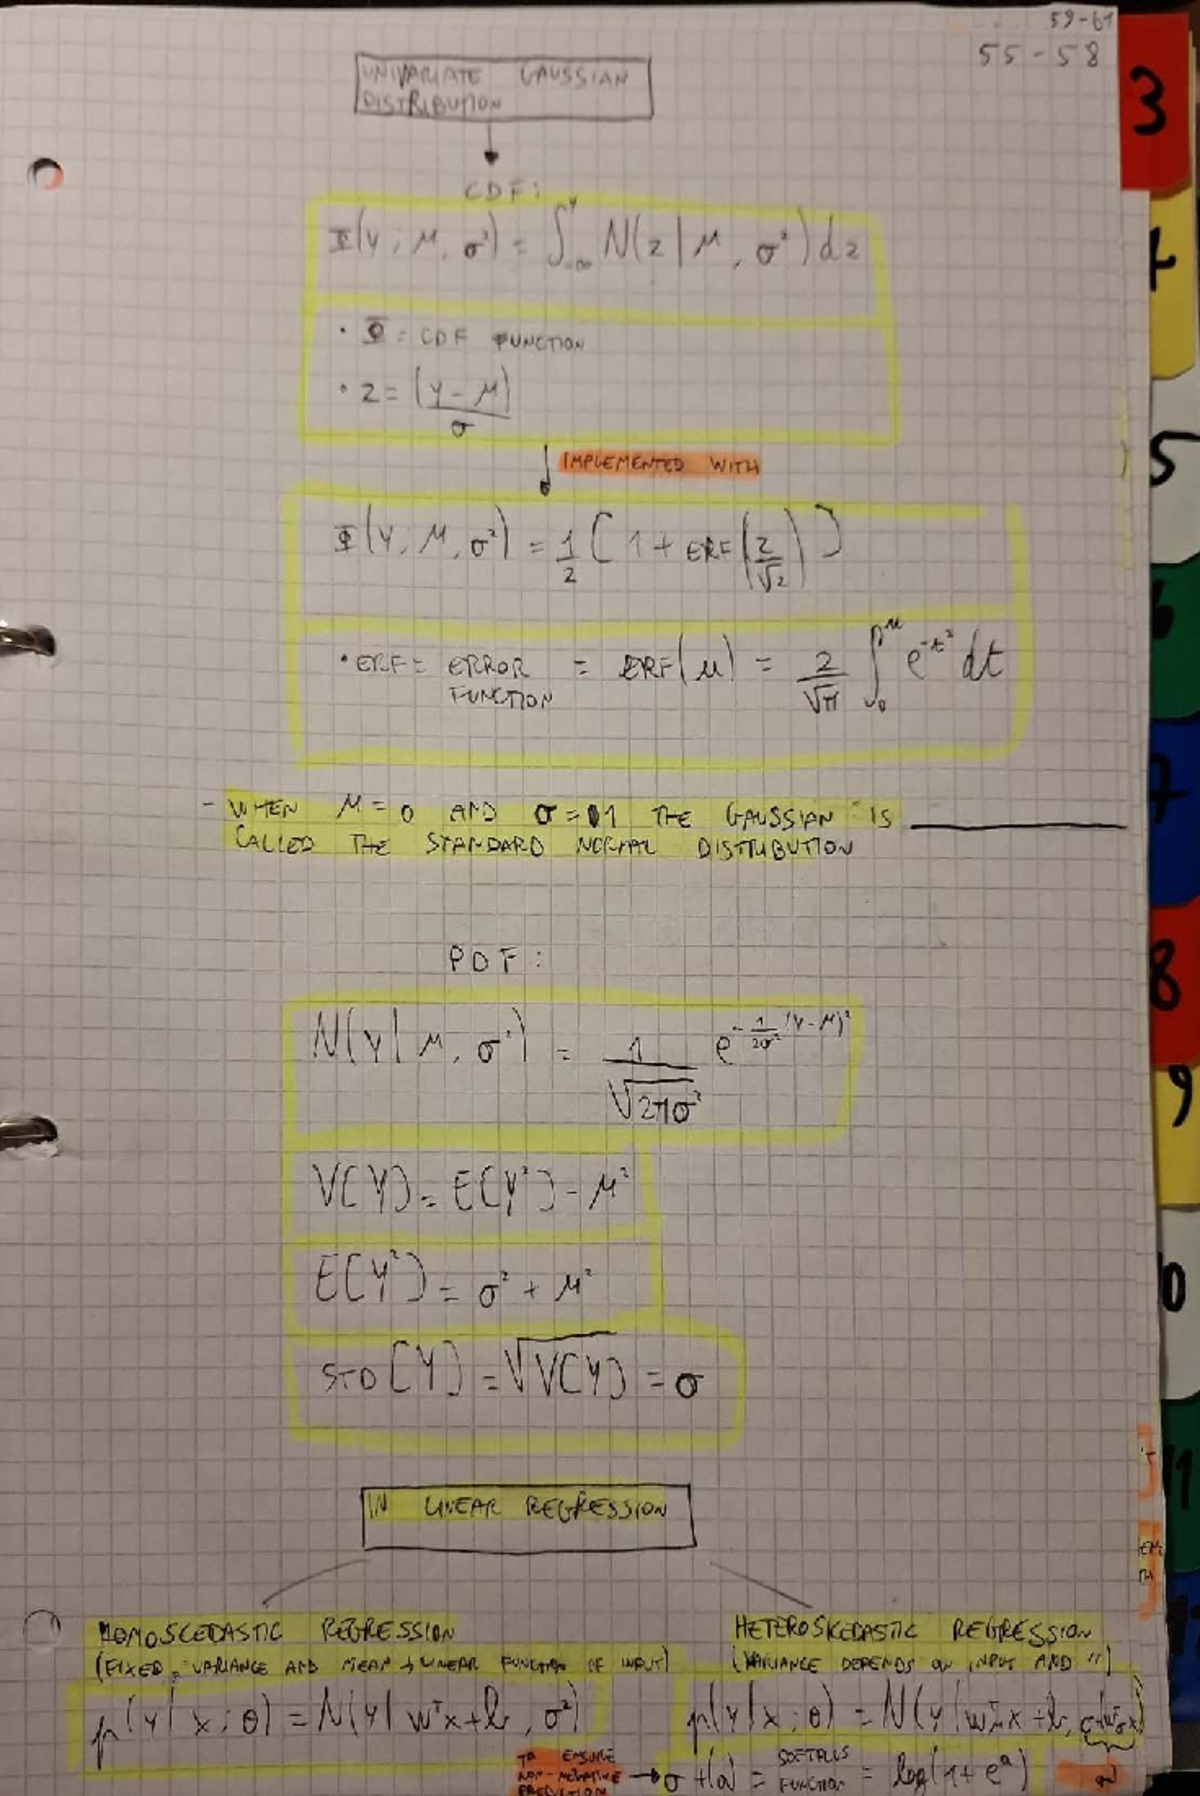 59-61
55-58
UNIVARIATE GAUSSIAN
DISTRIBUTION
CDF:
Φ(y; μ, σ²) = ∫_{-∞}^{y} N(z | μ, σ²) dz
• Φ = CDF FUNCTION
• z = (y - μ) / σ
IMPLEMENTED WITH
Φ(y; μ, σ²) = 1/2 [1 + ERF(z/√2)]
• ERF = ERROR FUNCTION = ERF(u) = 2/√π ∫_0^u e^{-t²} dt
- WHEN μ = 0 AND σ = 1 THE GAUSSIAN IS
CALLED THE STANDARD NORMAL DISTRIBUTION
PDF:
N(y | μ, σ²) = 1/√(2πσ²) e^{-1/(2σ²) (y-μ)²}
V[Y] = E[Y²] - μ²
E[Y²] = σ² + μ²
STD[Y] = √V[Y] = σ
IN LINEAR REGRESSION
HOMOSCEDASTIC REGRESSION
(FIXED VARIANCE AND MEAN → LINEAR FUNCTION OF INPUT)
p(y | x; θ) = N(y | wᵀx + b, σ²)
HETEROSKEDASTIC REGRESSION
(VARIANCE DEPENDS ON INPUT AND ")
p(y | x; θ) = N(y | w_μᵀx + b, σ+(w_σᵀx))
TO ENSURE
NON-NEGATIVE
PREDICTION
→ σ+(a) = SOFTPLUS FUNCTION = log(1 + e^a)
3
4
5
6
7
8
9
0
11